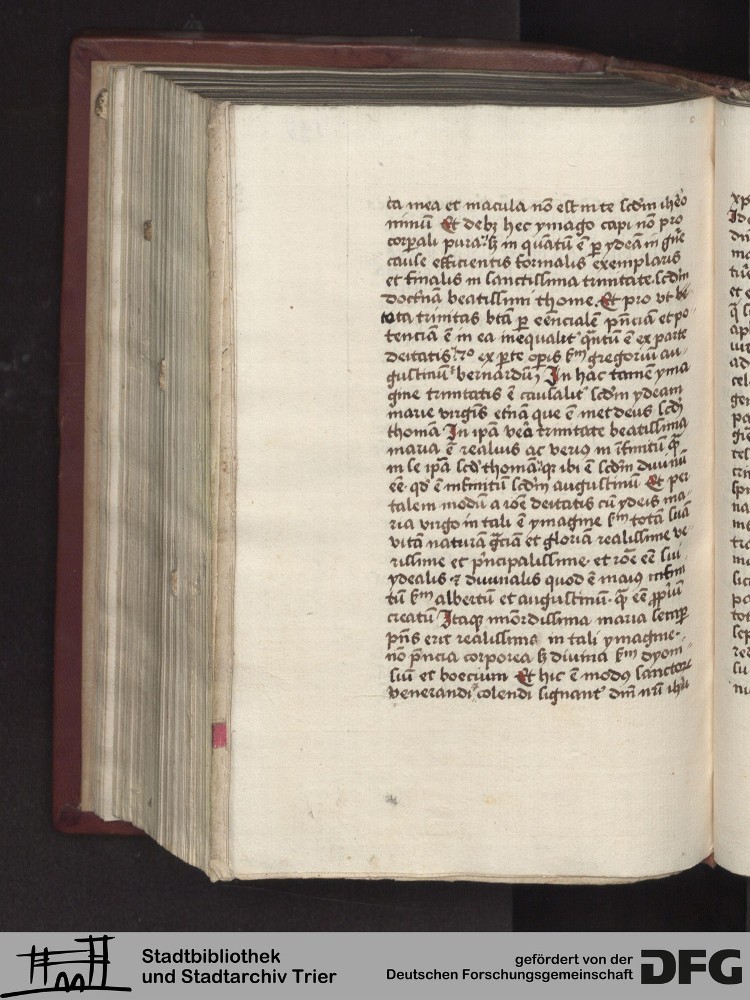 ca mea et macula nõ est in te scdm ihero
nimũ Et debꝫ hec ymago capi nõ pro
corpali pura sꝫ in quãtũ ẽ ꝑ ydeam in gñe
cause efficientis formalis exemplaris
et finalis in sanctissima trinitate scdm
doctnã beatissimi thome Et pro vt be
ata trinitas btã ꝑ eẽncialem pñciam et po
tenciã ẽ in ea inequalit qñtũ ẽ ex parte
deitatis ex pte opis km gregoriũ au
gustinũ bernardũ In hac tamẽ yma
gine trinitatis ẽ causalit scdm ydeam
marie virgis etnã que ẽ met deus scdm
thomã In ipã vea trinitate beatissima
maria ẽ realius ac verius in ifinitũ qã
in se ipã scd thomã qꝫ ibi ẽ scdm diuinũ
eẽ qd ẽ infinitũ scdm augustinũ Et per
talem modũ a iõe deitatis cũ ydeis ma
ria virgo in tali ẽ ymagine km totã suã
vitã naturã gciã et gloriã realissime ve
rissime et pncipalissime et rõe eẽ sui
ydealis et diuinalis quod ẽ maius infini
tũ km albertũ et augustinũ qã eẽ ꝓpriũ
creatũ Itaqꝫ maria semꝑ
pñs erit realissima in tali ymagine
nõ pñcia corporea sꝫ diuina km dyoni
siũ et boecium Et hic ẽ modus sanctorum
venerandi colendi dñm nm ihũ
Stadtbibliothek
und Stadtarchiv Trier
gefördert von der
Deutschen Forschungsgemeinschaft
DFG